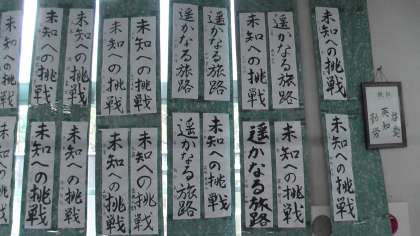 未知への挑戦
遥かなる旅路
未知への挑戦
遥かなる旅路
遥かなる旅路
未知への挑戦
未知への挑戦
未知への挑戦
未知への挑戦
未知への挑戦
未知への挑戦
未知への挑戦
遥かなる旅路
未知への挑戦
遥かなる旅路
未知への挑戦
未知への挑戦
未知への挑戦
未知への挑戦
未知への挑戦
英知
勤労